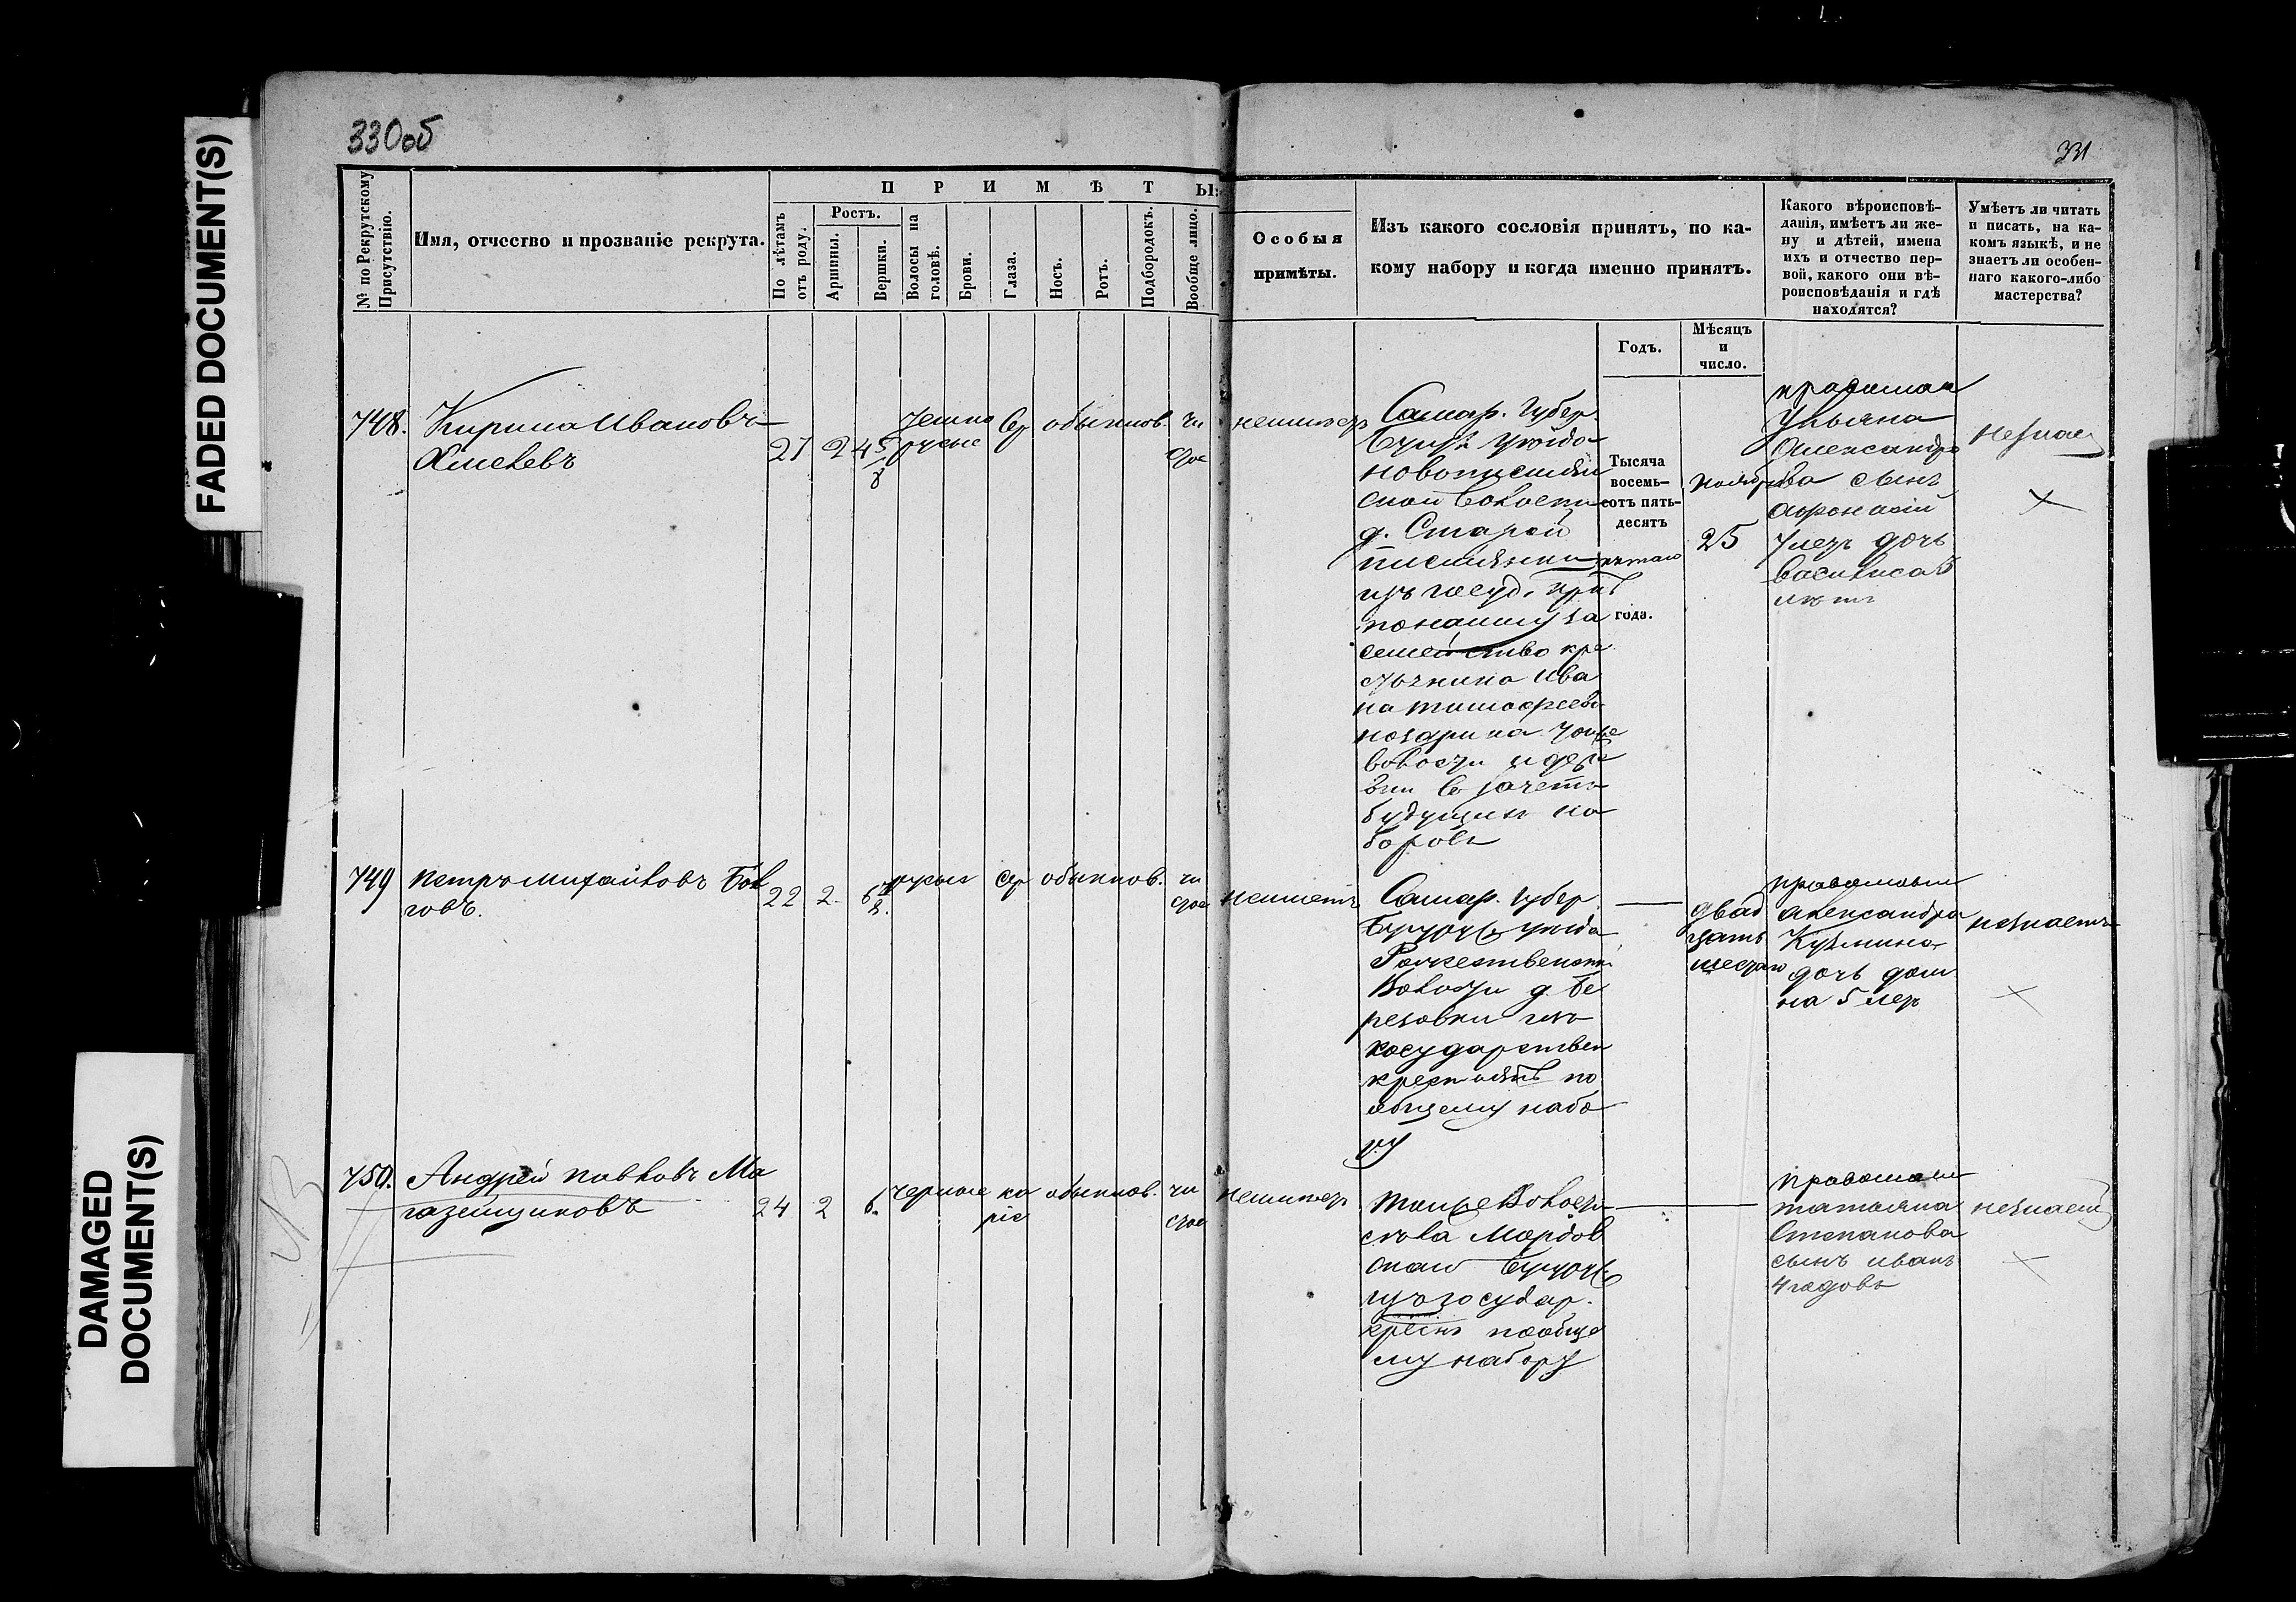 FADED DOCUMENT(S)
DAMAGED
DOCUMENT(S)
330об
331
№ по Рекрутскому
Присутствію.
Имя, отчество и прозваніе рекрута.
П Р И М Ѣ Т Ы:
По лѣтамъ
отъ роду.
Ростъ.
Аршины.
Вершки.
Волосы на
головѣ.
Брови.
Глаза.
Носъ.
Ротъ.
Подбородокъ.
Вообще лицо.
Особыя
примѣты.
Изъ какого сословія принятъ, по ка-
кому набору и когда именно принятъ.
Годъ.
Мѣсяцъ
и
число.
Какого вѣроисповѣ-
данія, имѣетъ ли же-
ну и дѣтей, имена
ихъ и отчество пер-
вой, какого они вѣ-
роисповѣданія и гдѣ
находятся?
Умѣетъ ли читать
и писать, на ка-
комъ языкѣ, и не
знаетъ ли особен-
наго какого-либо
мастерства?
748.
Кирила Ивановъ
21
2
4 5/8
темно
русые
Ср
обыкнов.
чи
стое
неимѣет
Самар. Губер
уѣзда
волости
д. Старой
писмянки
изъ госуд.
семейство кре
стьянина Ива
на Тимофеева
волости и дере
вни в зачетъ
будущихъ на
боровъ
Тысяча
восемь-
сотъ пять-
десятъ
пятаго
года.
ноября
25
Ульяна
Александро
ва сынъ
Афонасій
дочь
василиса
лѣтъ
незнает
749
Петръ Михайловъ Бол
говъ.
22
2
русые
ср
обыкнов.
чи
стое
неимѣетъ
Самар. губер
уѣзда
Рожественской
Волости д. Бе
резовки изъ
государствен
крестьянъ по
общему набо
ру
двад
цать
шестаго
Александра
Кузмина
дочь дом
на 5 мец
незнаетъ
750.
Андрей Павловъ Ма
газейщиковъ
24
2
6.
черные
ка
ріе
обыкнов.
чи
стое
неимѣет
тойже Волости
села Мордов
изъ государ.
крест пообще
му набору
татьяна
Степанова
сынъ иванъ
4 годовъ
незнает